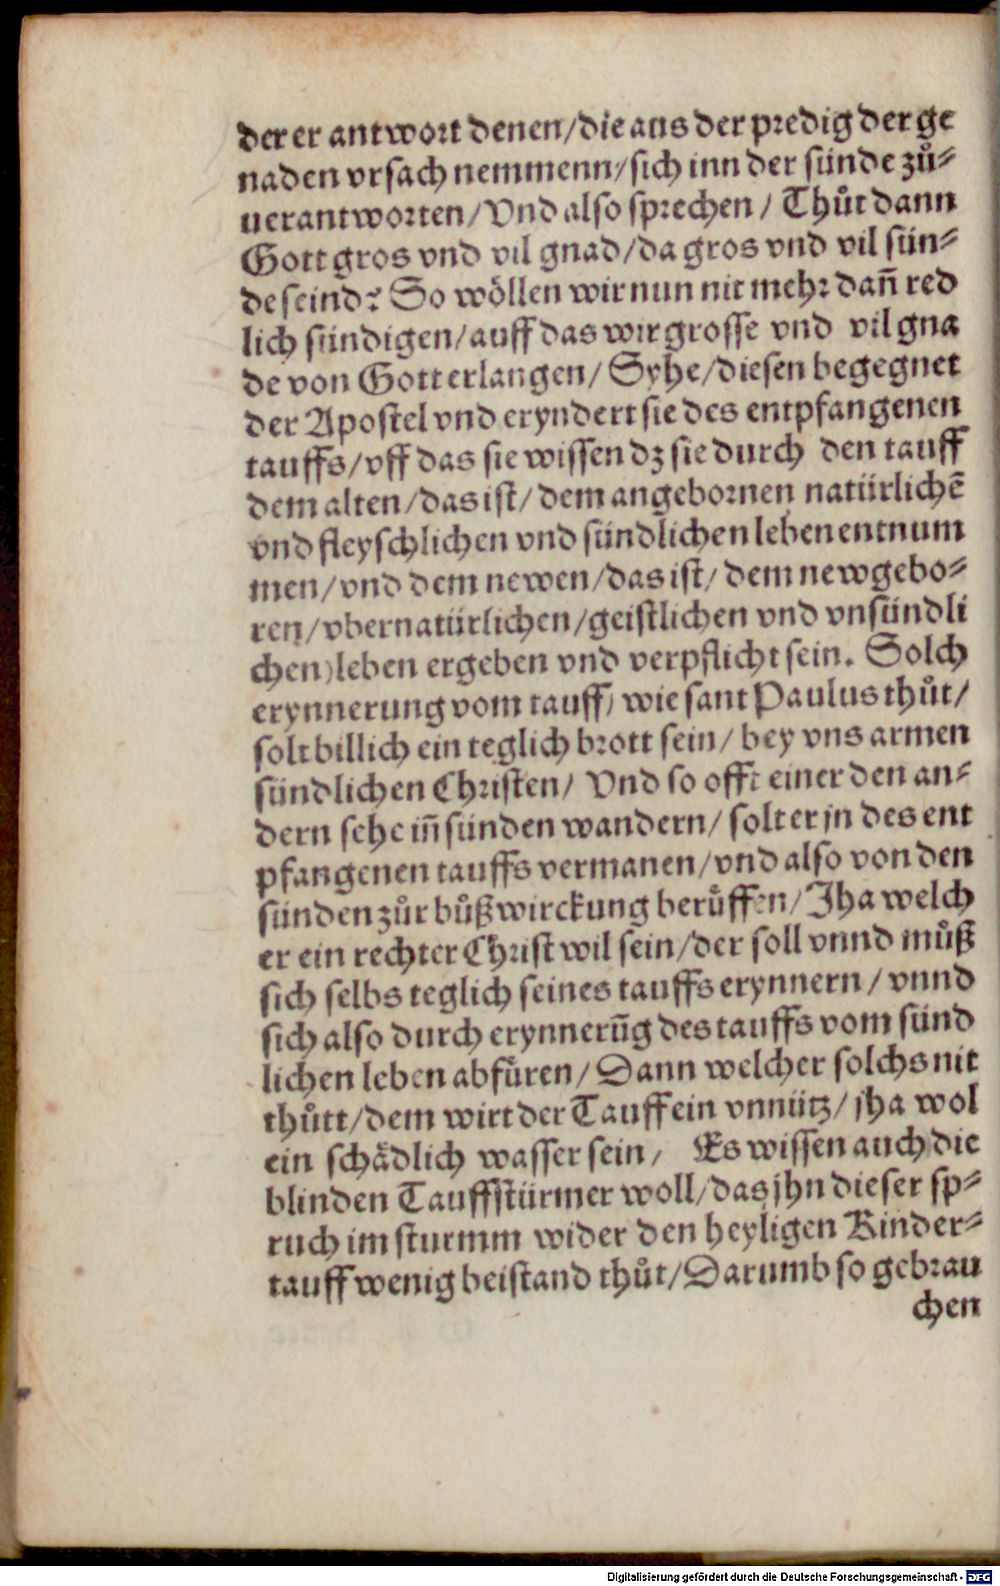 der er antwort denen/die aus der predig der ge
naden vrsach nemmenn/sich inn der sünde zů⸗
uerantworten/Vnd also sprechen/ Thůt dann
Gott gros vnd vil gnad/da gros vnd vil sün⸗
de seind? So wöllen wir nun nit mehr dañ red
lich sündigen/auff das wir grosse vnd vil gna
de von Gott erlangen/ Syhe/diesen begegnet
der Apostel vnd eryndert sie des entpfangenen
tauffs/vff das sie wissen dz sie durch den tauff
dem alten/das ist/dem angebornen natürlichē
vnd fleyschlichen vnd sündlichen leben entnum
men/vnd dem newen/das ist/ dem newgebo⸗
ren/vbernatürlichen/geistlichen vnd vnsündli
chen)leben ergeben vnd verpflicht sein. Solch
erynnerung vom tauff/ wie sant Paulus thůt/
solt billich ein teglich brott sein/ bey vns armen
sündlichen Christen/ Vnd so offt einer den an⸗
dern sehe iñ sünden wandern/ solt er jn des ent
pfangenen tauffs vermanen/vnd also von den
sünden zůr bůßwirckung berůffen/Jha welch
er ein rechter Christ wil sein/der soll vnnd můß
sich selbs teglich seines tauffs erynnern/ vnnd
sich also durch erynnerūg des tauffs vom sünd
lichen leben abfüren/ Dann welcher solchs nit
thůtt/dem wirt der Tauff ein vnnütz/ jha wol
ein schädlich wasser sein/ Es wissen auch die
blinden Tauffstürmer woll/das jhn dieser sp⸗
ruch im sturmm wider den heyligen Kinder⸗
tauff wenig beistand thůt/Darumb so gebrau
chen
Digitalisierung gefördert durch die Deutsche Forschungsgemeinschaft - DFG